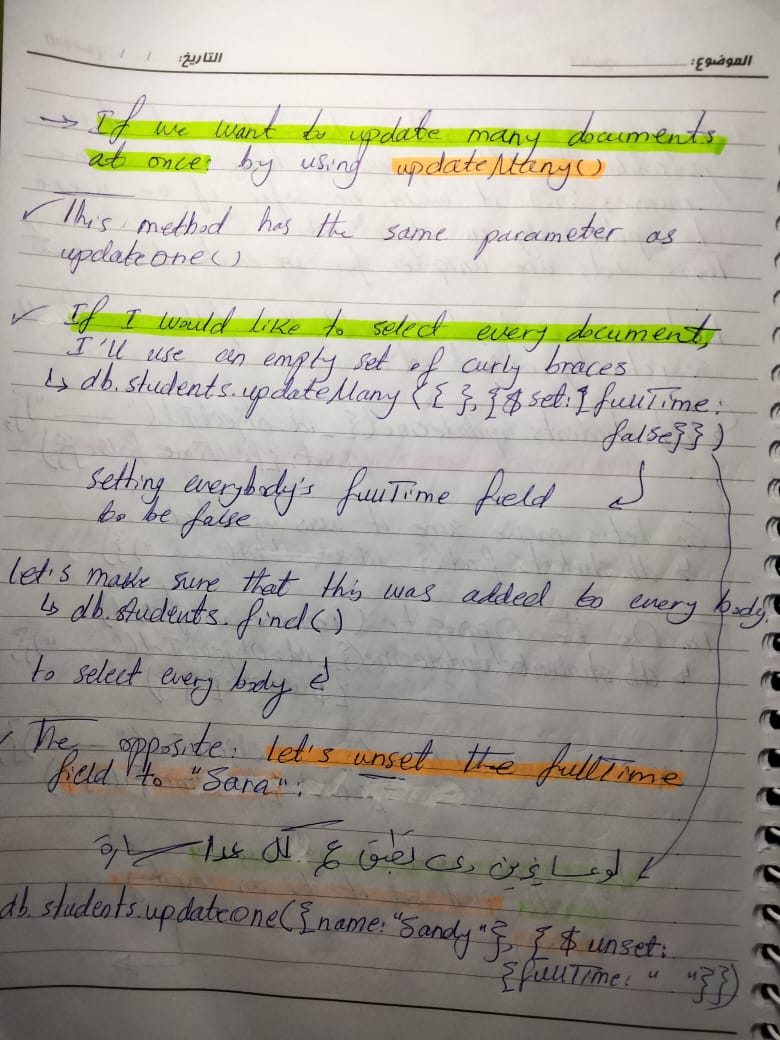 الموضوع: التاريخ: / /
→ If we want to update many documents
at once: by using updateMany()
✓ This method has the same parameter as
updateone()
✓ If I would like to select every document,
I'll use an empty set of curly braces
↳ db.students.updateMany({ }, {$set: {fullTime:
false}})
setting everybody's fullTime field ↲
to be false
Let's make sure that this was added to every body.
↳ db.students.find()
to select every body ↲
✓ The opposite: let's unset the fullTime
field to "Sara":
لو عايزين نطبق ع الكل عدا سارة
db.students.updateone({name: "Sandy"}, { $unset:
{fullTime: " "}})